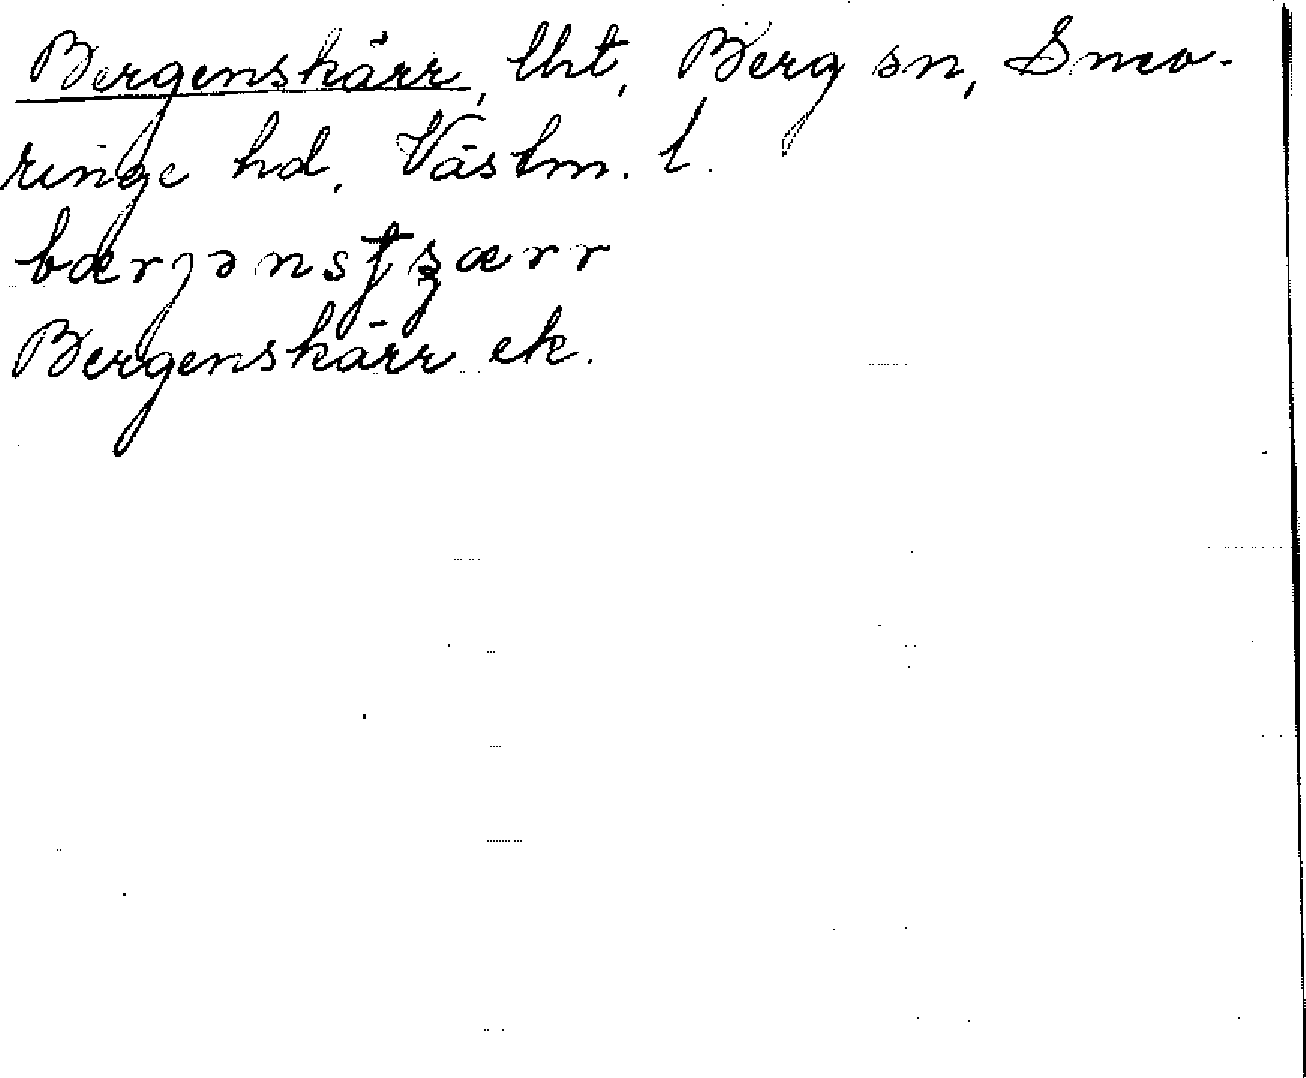 Bergenskärr, lht, Berg sn, Snev-
ringe hd, Västm. l.
Bergenskärr ek.